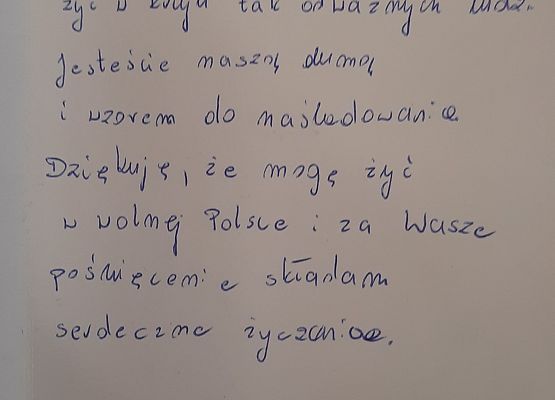 żyć w kraju tak odważnych ludzi.
Jesteście naszą dumą
i wzorem do naśladowania
Dziękuję, że mogę żyć
w wolnej Polsce i za Wasze
poświęcenie składam
serdeczne życzenia.